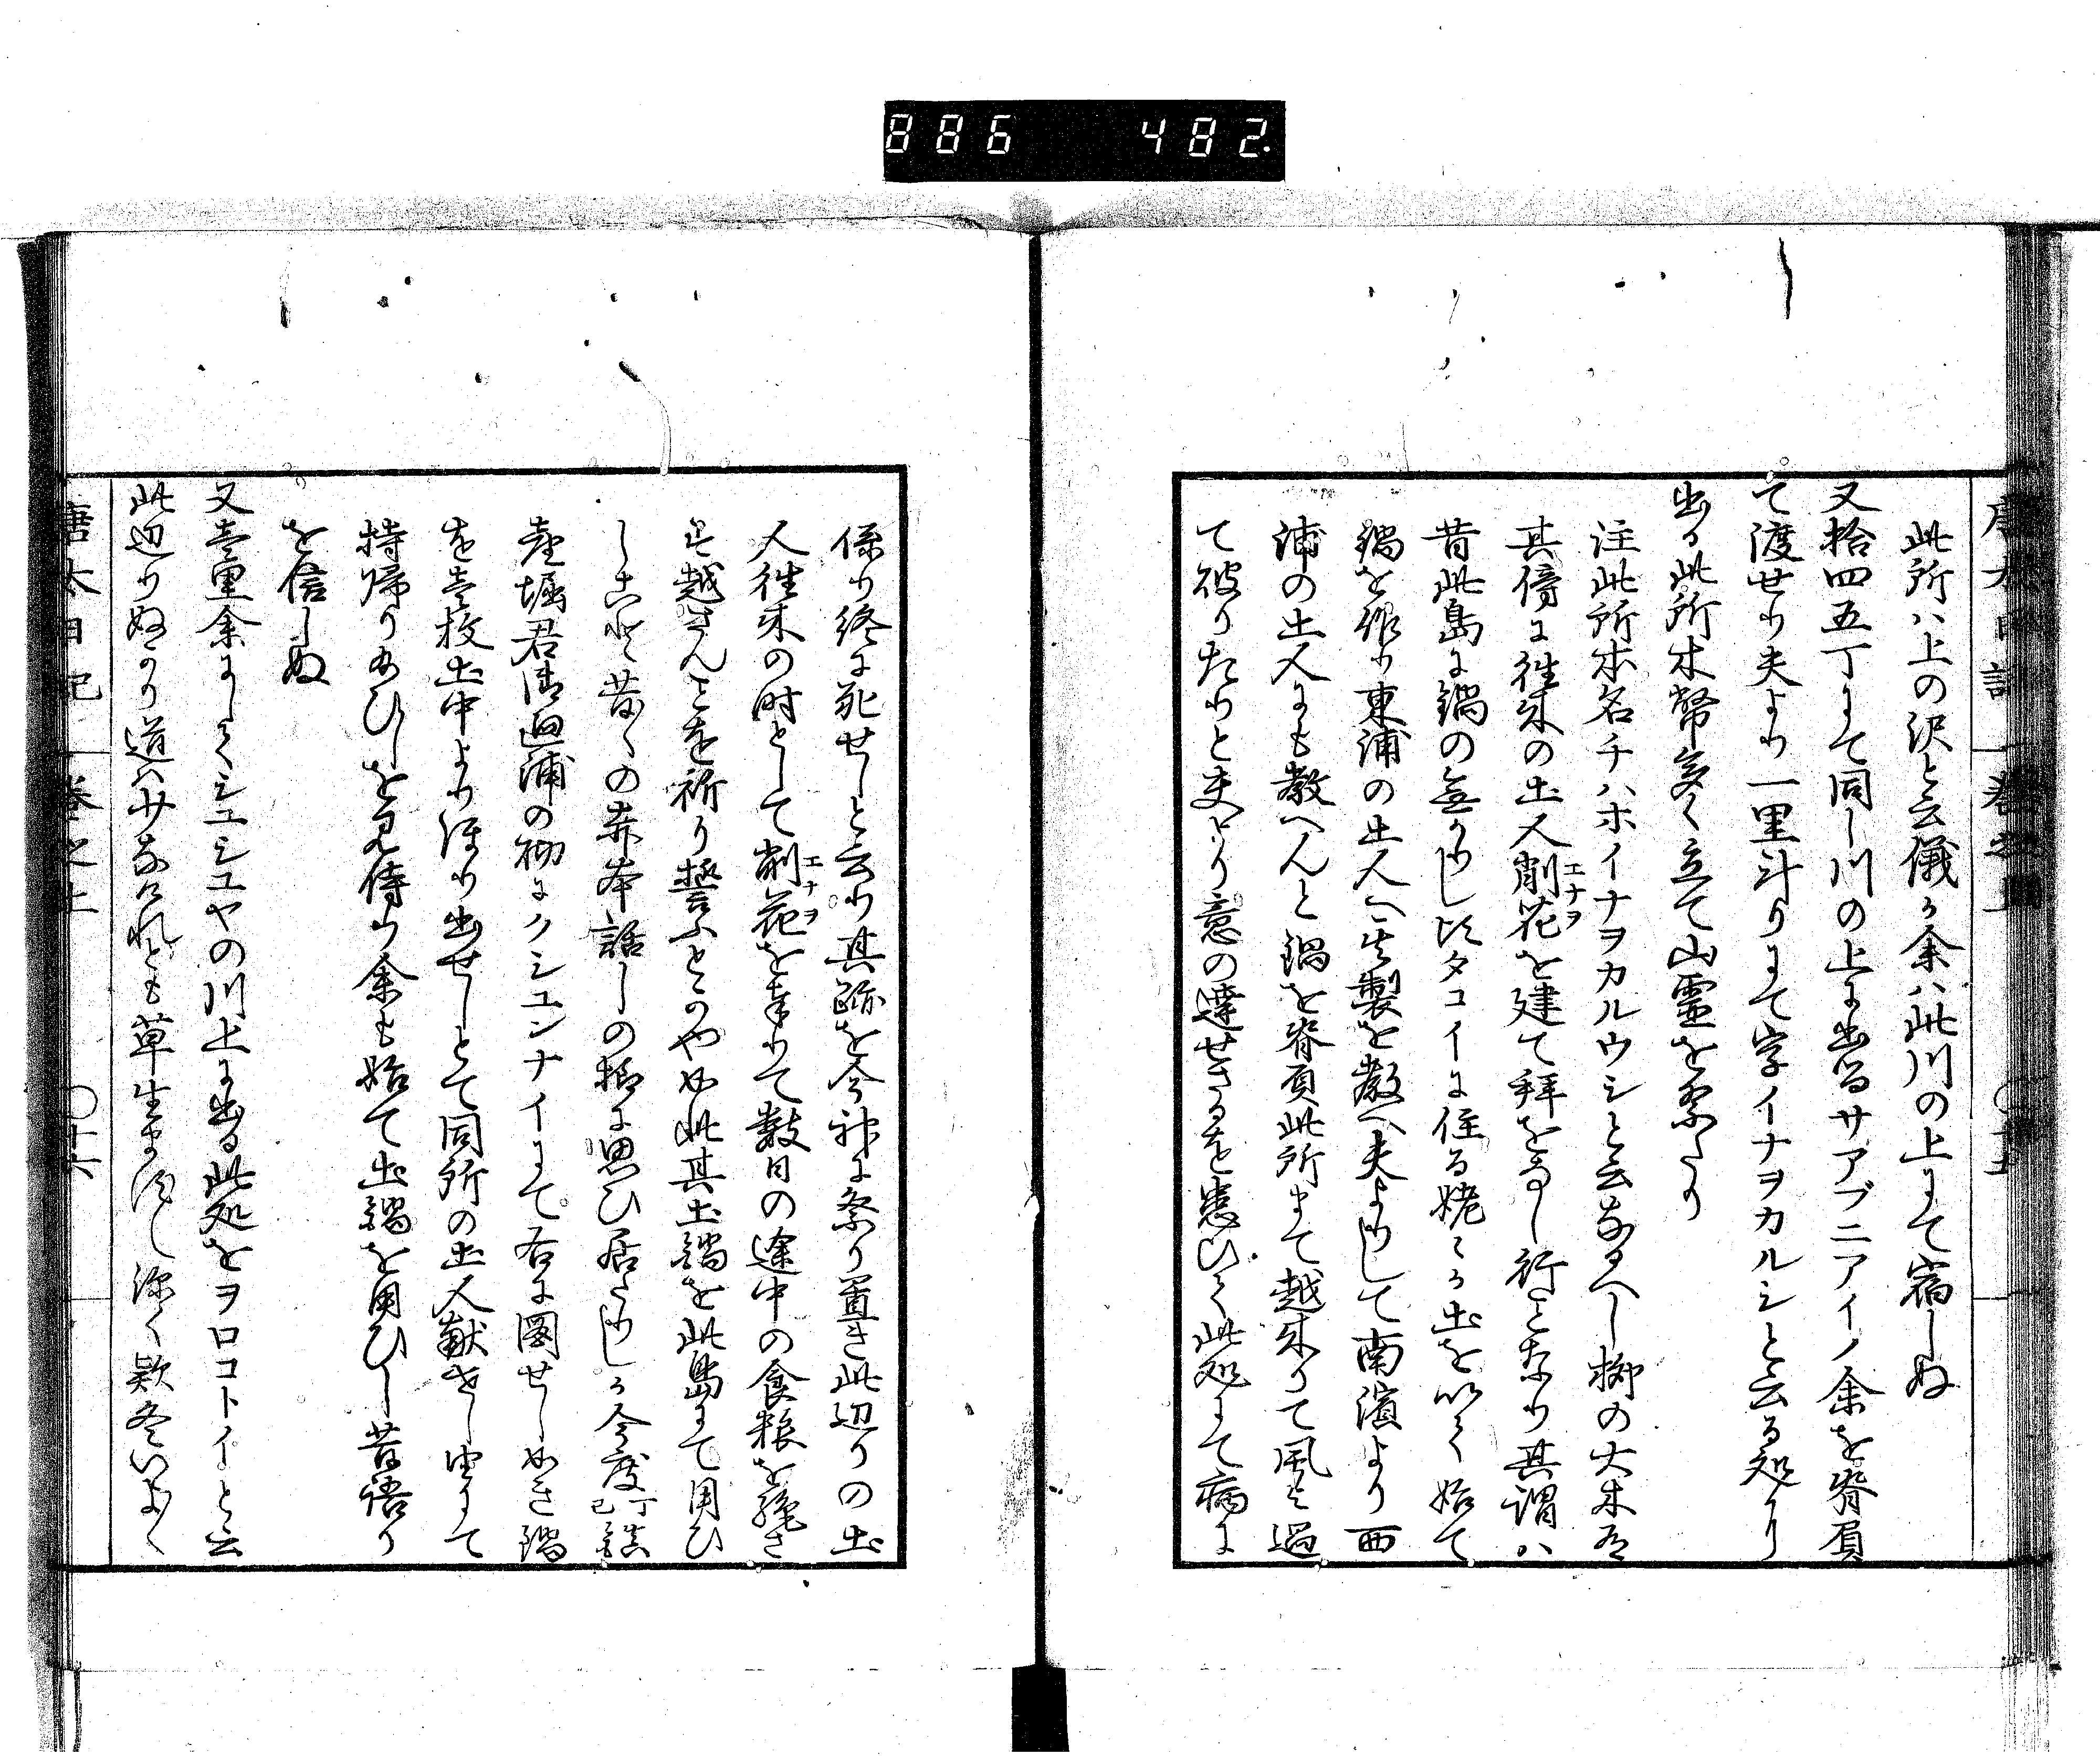 886 482.
此所ハ上の沢と云儀か余ハ此川の上にて宿しぬ
又拾四五丁にて同し川の上に出るサアブニアイノ余を脊負
て渡せり夫より一里斗りにて字イナヲカルシと云る処り
出る此所木幣多く立て山霊を祭たり
注此所本名チハホイナヲカルウシと云なるへし柳の大木有
其傍に往来の土人削花を建て拝をなし行となり其謂ハ
エナヲ
昔此島に鍋の無かりし比タコイに住る姥々か土を以て始て
鍋を作り東浦の土人へ生製を教へ夫よりして南濱より西
浦の土人にも教へんと鍋を脊負此所まて越来りて風と過
て破りたりと夫より意の達せさるを患ひて此処にて病に
係り終に死せしと云り其跡を今神に祭り置き此辺りの土
人往来の時として削花を奉りて数日の途中の食粮を絶さ
エナヲ
す越さんことを祈り誓ふとかや如此其土鍋を此島にて用ひ
しこれ等昔々の赤本話しの様に思ひ居たりしか今度丁巳鎮
臺堀君御廻浦の砌にクシユンナイにて右に図せし如き鍋
を壱枚土中よりほり出せしとて同所の土人献せし由にて
持帰り給ひしを見侍り余も始て土鍋を用ひし昔語り
を信しぬ
又壱里余にしてシユシユヤの川上に出る此処をヲロコトイと云
此辺りぬかり道ハ少なけれとも草生ます〳〵深く款冬いよ〳〵
唐太日記 巻之上 〇十六